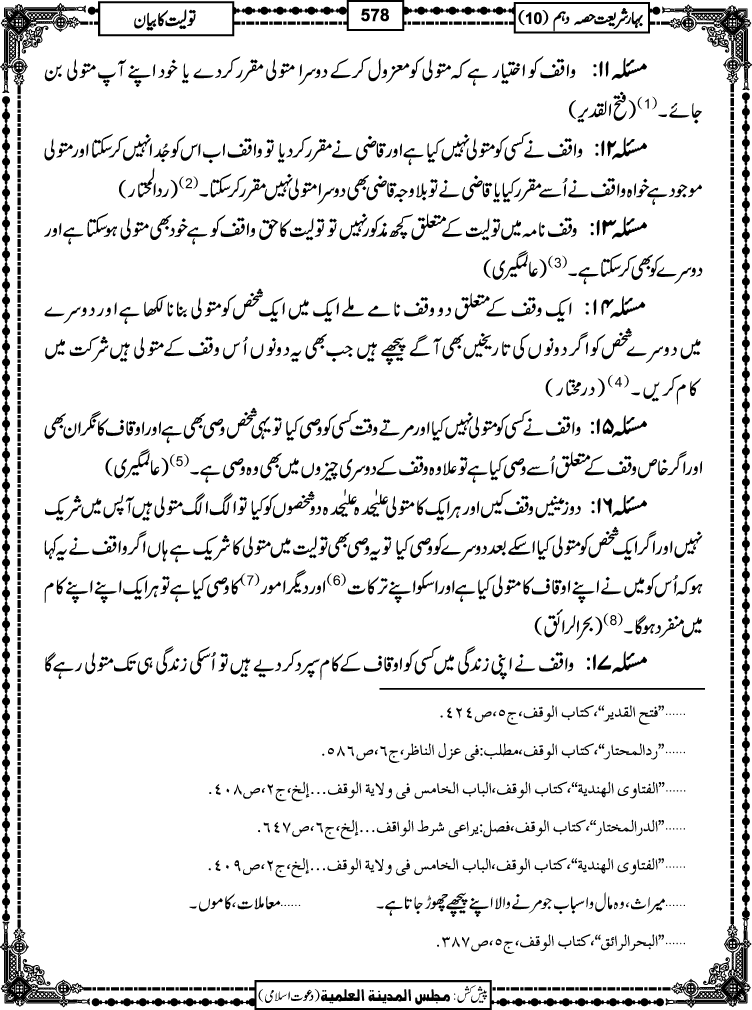 بہارِ شریعت حصہ دہم (10)
578
تولیت کا بیان
مسئلہ ۱۱: واقف کو اختیار ہے کہ متولی کو معزول کرکے دوسرا متولی مقرر کردے یا خود اپنے آپ متولی بن
جائے۔(1) (فتح القدیر)
مسئلہ ۱۲: واقف نے کسی کو متولی نہیں کیا ہے اور قاضی نے مقرر کر دیا تو واقف اب اس کو جُدا نہیں کرسکتا اور متولی
موجود ہے خواہ واقف نے اُسے مقرر کیا یا قاضی نے تو بلا وجہ قاضی بھی دوسرا متولی نہیں مقرر کرسکتا۔(2) (ردالمحتار)
مسئلہ ۱۳: وقف نامہ میں تولیت کے متعلق کچھ مذکور نہیں تو تولیت کا حق واقف کو ہے خود بھی متولی ہوسکتا ہے اور
دوسرے کو بھی کرسکتا ہے۔(3) (عالمگیری)
مسئلہ ۱۴: ایک وقف کے متعلق دو وقف نامے ملے ایک میں ایک شخص کو متولی بنانا لکھا ہے اور دوسرے
میں دوسرے شخص کو اگر دونوں کی تاریخیں بھی آگے پیچھے ہیں جب بھی یہ دونوں اُس وقف کے متولی ہیں شرکت میں
کام کریں۔(4) (درمختار)
مسئلہ ۱۵: واقف نے کسی کو متولی نہیں کیا اور مرتے وقت کسی کو وصی کیا تو یہی شخص وصی بھی ہے اور اوقاف کا نگران بھی
اور اگر خاص وقف کے متعلق اُسے وصی کیا ہے تو علاوہ وقف کے دوسری چیزوں میں بھی وہ وصی ہے۔(5) (عالمگیری)
مسئلہ ۱۶: دو زمینیں وقف کیں اور ہر ایک کا متولی علیٰحدہ علیٰحدہ دو شخصوں کو کیا تو الگ الگ متولی ہیں آپس میں شریک
نہیں اور اگر ایک شخص کو متولی کیا اسکے بعد دوسرے کو وصی کیا تو یہ وصی بھی تولیت میں متولی کا شریک ہے ہاں اگر واقف نے یہ کہا
ہو کہ اُس کو میں نے اپنے اوقاف کا متولی کیا ہے اور اسکو اپنے ترکات(6) اور دیگر امور(7) کا وصی کیا ہے تو ہر ایک اپنے اپنے کام
میں منفرد ہوگا۔(8) (بحرالرائق)
مسئلہ ۱۷: واقف نے اپنی زندگی میں کسی کو اوقاف کے کام سپرد کر دیے ہیں تو اُسکی زندگی ہی تک متولی رہے گا
......”فتح القدیر“،کتاب الوقف،ج٥،ص٤٢٤.
......”ردالمحتار“،کتاب الوقف،مطلب:فی عزل الناظر،ج٦،ص٥٨٦.
......”الفتاوی الھندیة“،کتاب الوقف،الباب الخامس فی ولایة الوقف...إلخ،ج٢،ص٤٠٨.
......”الدرالمختار“،کتاب الوقف،فصل:یراعی شرط الواقف...إلخ،ج٦،ص٦٤٧.
......”الفتاوی الھندیة“،کتاب الوقف،الباب الخامس فی ولایة الوقف...إلخ،ج٢،ص٤٠٩.
......میراث،وہ مال و اسباب جو مرنے والا اپنے پیچھے چھوڑ جاتا ہے۔ ......معاملات،کاموں۔
......”البحرالرائق“،کتاب الوقف،ج٥،ص٣٨٧.
پیش کش: مجلس المدینة العلمیة (دعوت اسلامی)